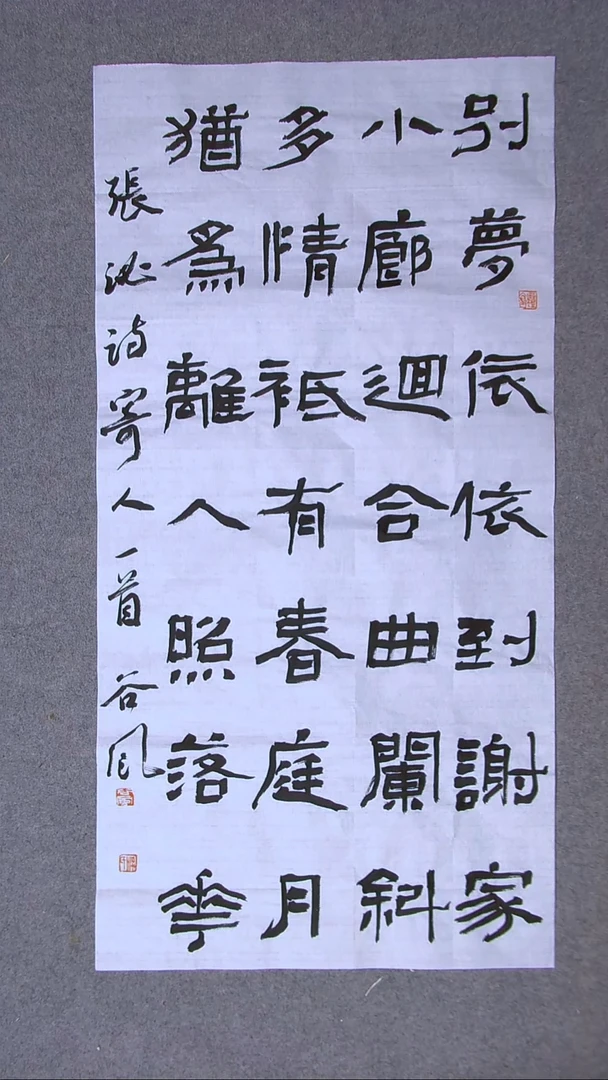 別夢依依到謝家
小廊迴合曲闌斜
多情祗有春庭月
猶為離人照落花
張泌诗寄人一首 谷风